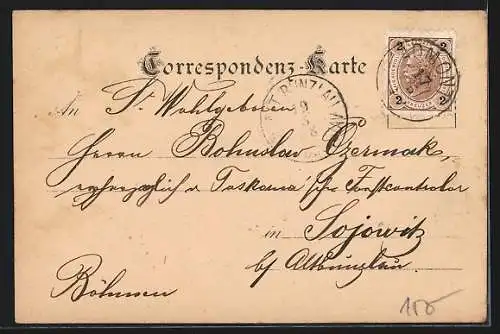 Correspondenz-Karte
2 2
ALT BUNZLAU
An Sr Wohlgeboren
Herrn Bohuslav Czermak,
Toskana'scher Forstcontrolor
in Sojowitz
bei Altbunzlau.
Böhmen
100